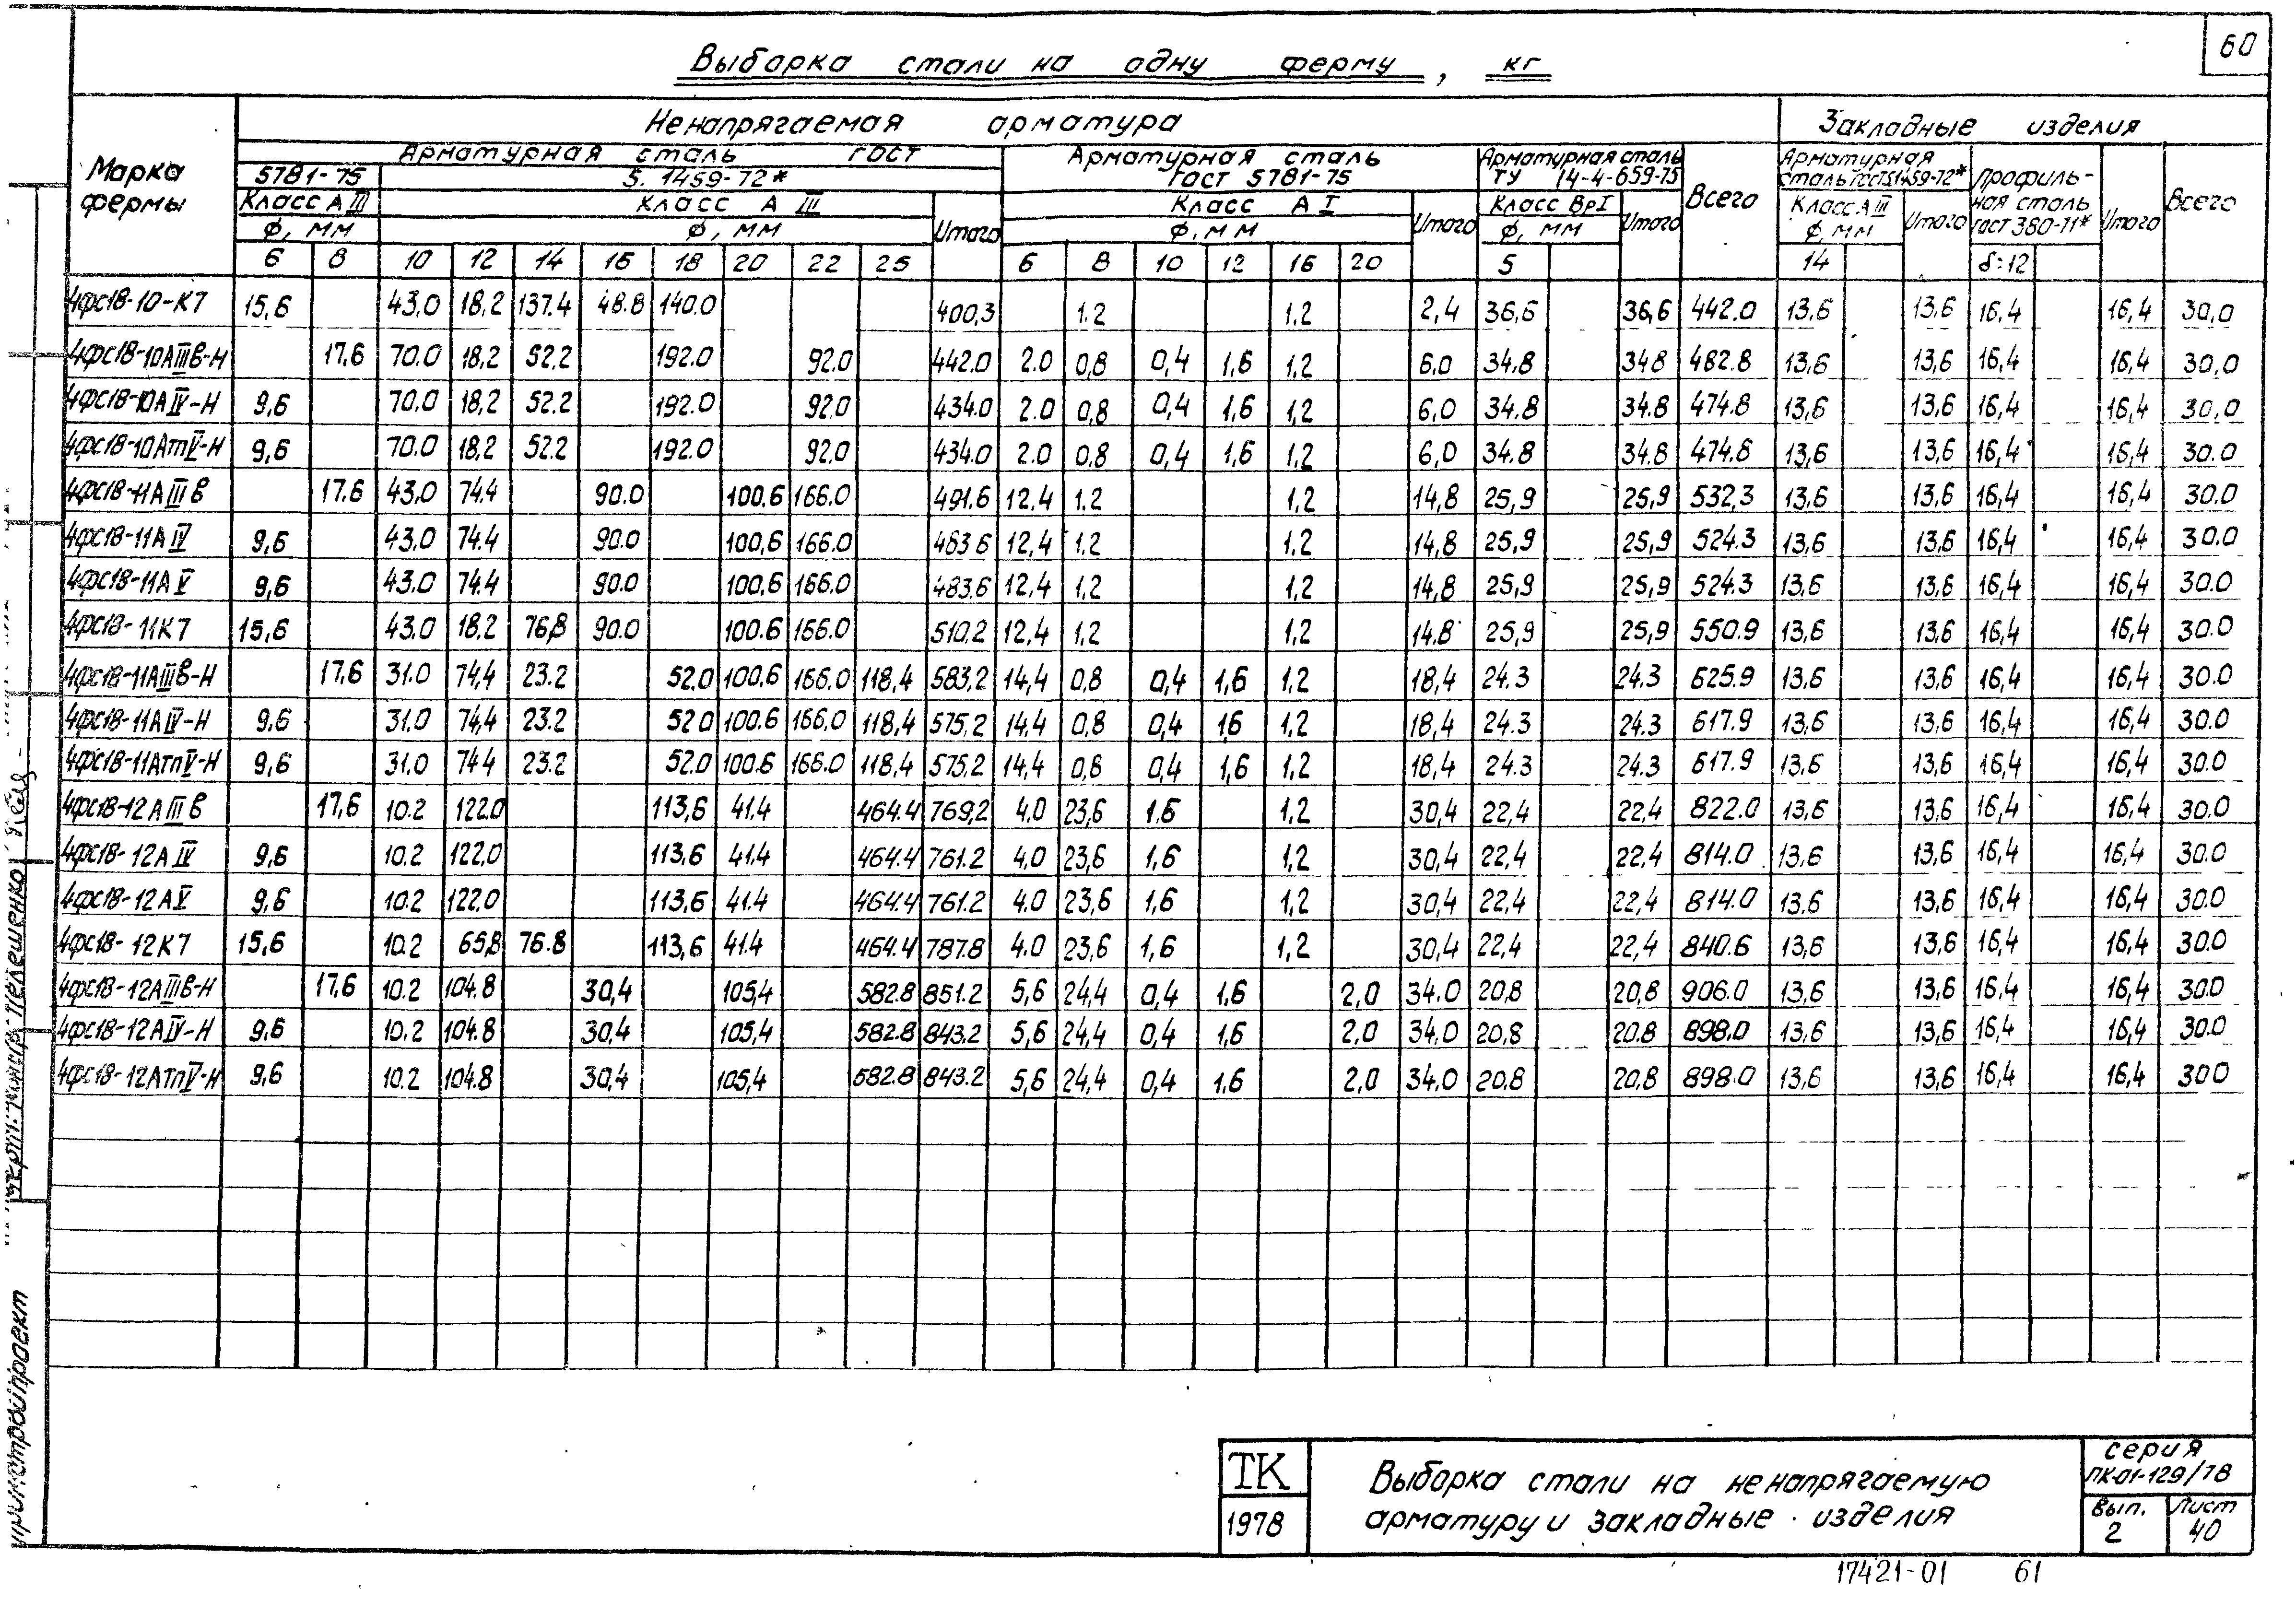 60
Выборка стали на одну ферму, кг
Марка фермы
Ненапрягаемая арматура
Закладные изделия
Арматурная сталь ГОСТ
5781-75
5.1459-72*
Класс А III
Класс А III
Итого
ф, мм
ф, мм
6 8 10 12 14 16 18 20 22 25
Арматурная сталь ГОСТ 5781-75
Класс А I
Итого
ф, мм
6 8 10 12 16 20
Арматурная сталь ТУ 14-4-659-75
Класс ВрI
Итого
ф, мм
5
Всего
Арматурная сталь ГОСТ5.1459-72*
Класс АIII
Итого
ф, мм
14
Профильная сталь ГОСТ 380-71*
δ=12
Итого
Всего
4фс18-10-К7 15,6 43,0 18,2 137.4 48.8 140.0 400,3 1.2 1.2 2,4 36,6 36,6 442.0 13.6 13,6 16,4 16,4 30,0
4фс18-10АIIIв-Н 17,6 70.0 18,2 52.2 192.0 92.0 442.0 2.0 0,8 0,4 1,6 1,2 6,0 34.8 34.8 482.8 13,6 13,6 16,4 16,4 30,0
4фс18-10АIV-Н 9,6 70,0 18,2 52.2 192.0 92.0 434.0 2.0 0,8 0,4 1,6 1,2 6,0 34.8 34.8 474.8 13,6 13,6 16,4 16,4 30,0
4фс18-10АтV-Н 9,6 70.0 18,2 52.2 192.0 92.0 434.0 2.0 0,8 0,4 1,6 1,2 6,0 34.8 34.8 474.8 13,6 13,6 16,4 16,4 30.0
4фс18-11АIIIв 17.6 43,0 74.4 90.0 100.6 166.0 491.6 12,4 1.2 1,2 14,8 25,9 25,9 532,3 13,6 13,6 16,4 16,4 30.0
4фс18-11АIV 9,6 43.0 74.4 90.0 100,6 166.0 483.6 12,4 1.2 1.2 14,8 25,9 25,9 524.3 13,6 13,6 16,4 16,4 30.0
4фс18-11АV 9,6 43.0 74.4 90.0 100,6 166.0 483.6 12,4 1,2 1,2 14,8 25,9 25,9 524.3 13,6 13,6 16,4 16,4 30.0
4фс18-11К7 15,6 43.0 18.2 76,8 90.0 100.6 166.0 510,2 12,4 1.2 1,2 14.8 25,9 25,9 550.9 13,6 13,6 16,4 16,4 30.0
4фс18-11АIIIв-Н 17,6 31.0 74,4 23.2 52.0 100,6 166.0 118,4 583,2 14,4 0,8 0,4 1,6 1,2 18,4 24.3 24.3 625.9 13,6 13,6 16,4 16,4 30.0
4фс18-11АIV-Н 9,6 31.0 74,4 23.2 52.0 100.6 166,0 118,4 575,2 14,4 0,8 0,4 1,6 1,2 18,4 24.3 24.3 617.9 13,6 13,6 16,4 16,4 30.0
4фс18-11АтпV-Н 9,6 31.0 74.4 23.2 52.0 100.6 166.0 118,4 575.2 14,4 0,8 0,4 1,6 1,2 18,4 24.3 24.3 617.9 13,6 13,6 16,4 16,4 30.0
4фс18-12АIIIв 17,6 10.2 122.0 113,6 41.4 464.4 769,2 4,0 23,6 1.6 1,2 30,4 22,4 22,4 822.0 13,6 13,6 16,4 16,4 30.0
4фс18-12АIV 9,6 10.2 122.0 113,6 41.4 464.4 761.2 4.0 23,6 1,6 1,2 30,4 22,4 22,4 814.0 13,6 13,6 16,4 16,4 30.0
4фс18-12АV 9,6 10.2 122.0 113,6 41.4 464.4 761.2 4.0 23,6 1,6 1,2 30,4 22,4 22,4 814.0 13,6 13,6 16,4 16,4 30.0
4фс18-12К7 15,6 10.2 65,8 76.8 113,6 41.4 464.4 787.8 4.0 23,6 1,6 1,2 30,4 22,4 22,4 840.6 13,6 13,6 16,4 16,4 30.0
4фс18-12АIIIв-Н 17,6 10.2 104.8 30,4 105,4 582.8 851.2 5,6 24,4 0,4 1,6 2,0 34.0 20,8 20,8 906.0 13,6 13,6 16,4 16,4 30.0
4фс18-12АIV-Н 9,6 10.2 104.8 30,4 105,4 582.8 843.2 5,6 24,4 0,4 1,6 2,0 34.0 20,8 20.8 898.0 13,6 13,6 16,4 16,4 30.0
4фс18-12АтпV-Н 9,6 10.2 104.8 30,4 105,4 582.8 843.2 5,6 24,4 0,4 1.6 2,0 34.0 20,8 20,8 898.0 13,6 13,6 16,4 16,4 30.0
ТК
1978
Выборка стали на ненапрягаемую
арматуру и закладные изделия
серия
ПК-01-129/78
Вып. 2
Лист 40
17421-01 61